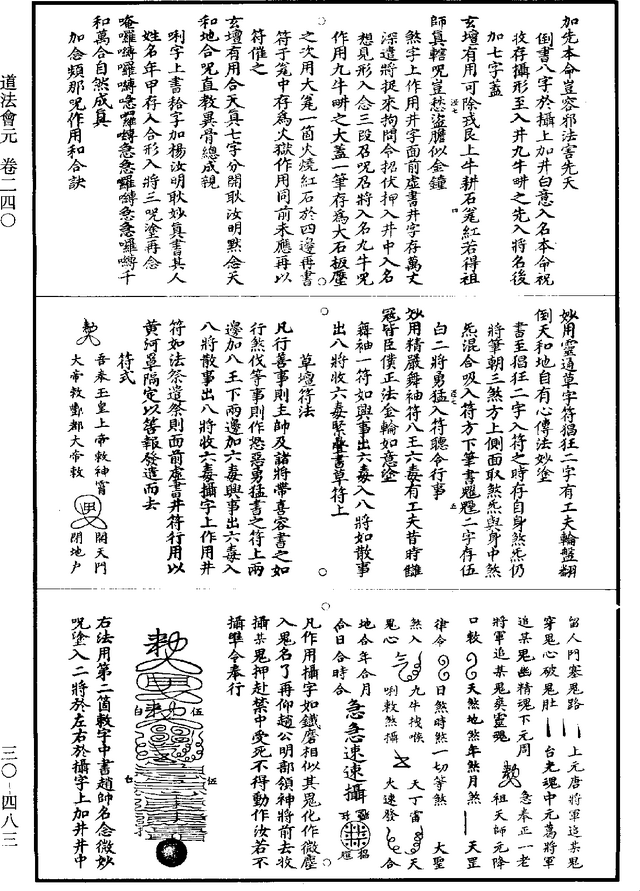 加先本命豈容邪法害先天
倒書八字於攝上加井白意入名本命祝
收存攝形至入井九牛畊之先入將名後
加七字蓋
玄壇有用可除戎艮上牛耕石篭紅若得祖
師真轄呪豈愁盜膽似金鐘
煞字上作用井字面前虛書井字存萬丈
深遣將捉來拘問令招伏押入井中入名
想見形入念三段召呪召將入名九牛呪
作用九牛畊之大蓋一筆存為大石板壓
之次用大篭一箇火燒紅石於四邊再書
符于篭中存為火獄作用同前未應再以
符催之
玄壇有用合天真七字分開耿汝明默念天
和地合呪直教異骨總成親
唎字上書給字加楊汝明耿妙真書其人
姓名年甲存入合形入將三呪塗再念
唵囉囀囉囀噫囉囀急急囉囀急急囉囀千
和萬合自然成真
加念頻那呪作用和合訣
道法會元 卷二四〇
妙用靈通草字符猖狂二字有工夫輪盤翻
倒天和地自有心傳法妙塗
書至猖狂二字入符之時存自身煞炁仍
將筆朝三煞方上側面取煞炁與身中煞
炁混合吸入符方下筆書二字存伍
白二將勇猛入符聽令行事
妙用精嚴舞袖符八王六毒有工夫昔時讎
冦皆臣僕正法金輪如意塗
舞袖一符如與事出六毒入八將如散事
出八將收六毒緊疊書草符上
草壇符法
凡行善事則主帥及諸將帶喜容書之如
行煞伐等事則作怒惡勇猛書之符上兩
邊加八王下兩邊加六毒與事出六毒入
八將散事出八將收六毒攝字上作用井
符如法祭遣祭則面前虛書井符行用以
黃河罩隔定以筹報發遣而去
符式
吾奉玉皇上帝敕神霄
大帝敕酆都大帝敕
開天門
閉地户
留人門塞鬼路
上元唐將軍追某鬼
穿鬼心破鬼肚
台光魂中元葛將軍
追某鬼幽精魂下元周
將軍追某鬼爽靈魂
急奉正一老
祖天師元降
口敕
天煞地煞年煞月煞
天罡
律令
日煞時煞一切等煞
大聖
煞入
九牛找喉
天丁雷
天
鬼心
唎敕煞攝
火速發
合
地合年合月
合日合時合
急急速速攝
凡作用攝字如鐵磨相似其鬼化作微塵
入鬼名了再仰趙公明部領神將前去收
攝某鬼押赴禁中受死不得動作汝若不
攝準令奉行
右法用第二箇敕字中書趙帥名念微妙
呪塗入二將於左右於攝字上加井井中
三〇-四八三